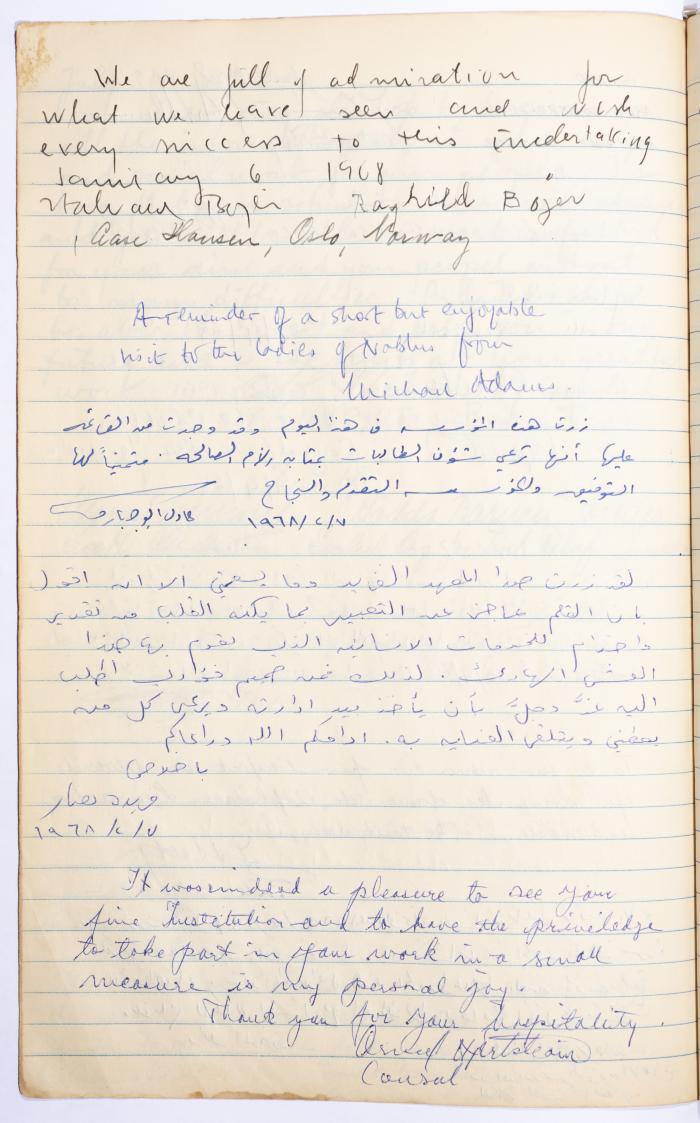 We are full of admiration for
what we have seen and wish
every success to this Undertaking
January 6 1968
Bojer Ragnhild Bojer
Aase Hansen, Oslo, Norway
A reminder of a short but enjoyable
visit to the ladies of Nablus from
Michael Adams.
زرت هذه المؤسسه في هذا اليوم وقد وجدت من القائمة
عليها أنها ترعى شؤون الطالبات بمثابه الأم الصالحه . متمنياً لها
التوفيق وللمؤسسه التقدم والنجاح
١٩٦٨/٢/٧ عادل
لقد زرت هذا المعهد الفريد وما يسعني الا ان اقول
بان القلم عاجز عن التعبير بما يكنه القلب من تقدير
واحترام للخدمات الانسانيه الذي يقوم بها هذا
العش الهادئ . لذلك فمن صميم فؤادي اطلب
اليه عزَّ وجلَّ بأن يأخذ بيد ادارته ويرعى كل من
يعطي ويتلقى العنايه به . ادامكم الله وراعاكم
باخلاص
فريده
١٩٦٨/٢/٧
It was indeed a pleasure to see your
fine Institution and to have the priviledge
to take part in your work in a small
measure is my personal joy.
Thank you for your hospitality.
Consul